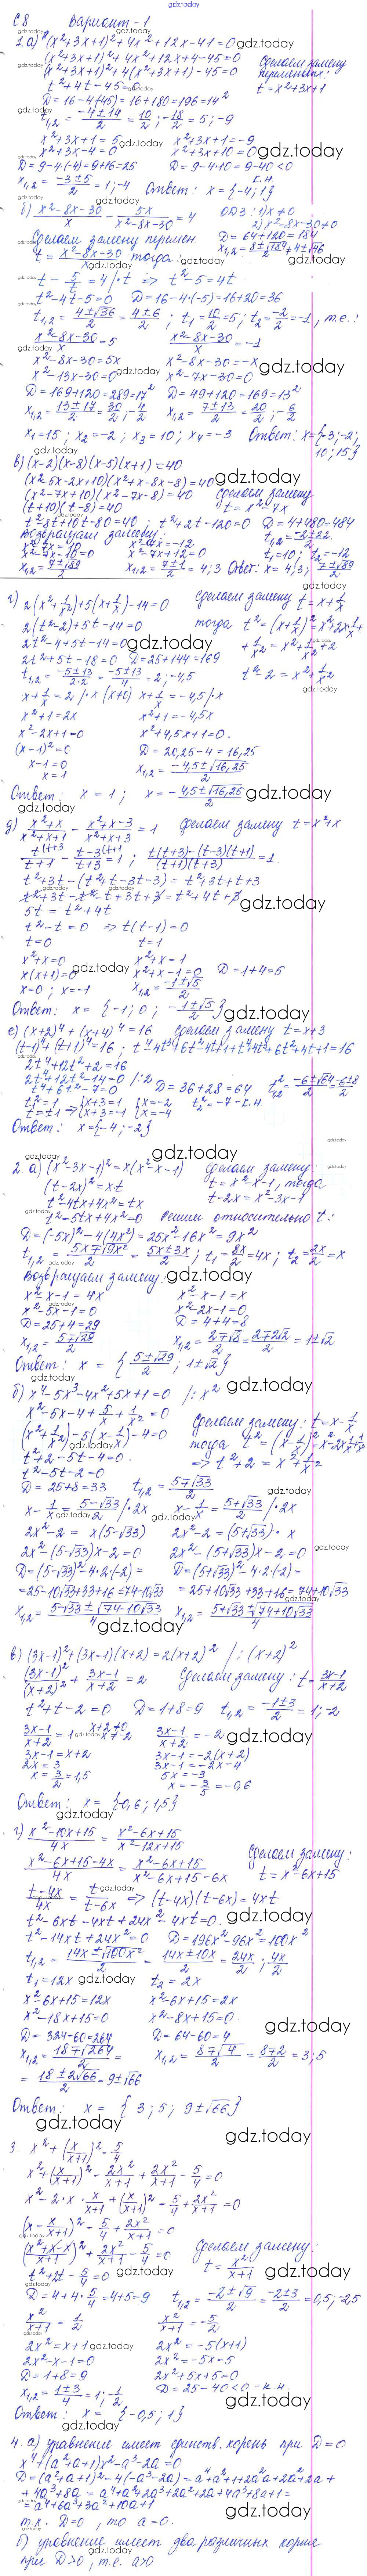 gdz.today
С8 Вариант-1
1.а) (x²+3x+1)²+4x²+12x-41=0
(x²+3x+1)²+4x²+12x+4-45=0
(x²+3x+1)²+4(x²+3x+1)-45=0
Сделаем замену переменных:
t = x²+3x+1
t²+4t-45=0
D=16-4·(-45)=16+180=196=14²
t₁,₂ = (-4±14)/2 = 10/2; -18/2 = 5; -9
x²+3x+1=5 x²+3x+1=-9
x²+3x-4=0 x²+3x+10=0
D=9-4·(-4)=9+16=25 D=9-4·10=9-40<0
к.н.
x₁,₂ = (-3±5)/2 = 1; -4 Ответ: x={-4;1}
б) (x²-8x-30)/x - 5x/(x²-8x-30) = 4 ОДЗ: 1) x≠0
2) x²-8x-30≠0
Сделаем замену перемен D=64+120=184
t = (x²-8x-30)/x тогда: x₁,₂ = (8±√184)/2 = 4±√46
t - 5/t = 4 |·t ⇒ t²-5=4t
t²-4t-5=0 D=16-4·(-5)=16+20=36
t₁,₂ = (4±√36)/2 = (4±6)/2; t₁=10/2=5; t₂=-2/2=-1, т.е.:
(x²-8x-30)/x = 5 (x²-8x-30)/x = -1
x²-8x-30=5x x²-8x-30=-x
x²-13x-30=0 x²-7x-30=0
D=169+120=289=17² D=49+120=169=13²
x₁,₂ = (13±17)/2 = 30/2; -4/2 x₁,₂ = (7±13)/2 = 20/2; -6/2
x₁=15; x₂=-2; x₃=10; x₄=-3 Ответ: x={-3;-2;
10;15}
в) (x-2)(x-8)(x-5)(x+1)=40
(x²-5x-2x+10)(x²+x-8x-8)=40
(x²-7x+10)(x²-7x-8)=40 Сделаем замену
(t+10)(t-8)=40 t=x²-7x
t²-8t+10t-80=40; t²+2t-120=0 D=4+480=484
Возвращаем замену: t₁,₂ = (-2±22)/2
x²-7x=10 x²-7x=-12 t₁=10; t₂=-12
x²-7x-10=0 x²-7x+12=0
x₁,₂ = (7±√89)/2 x₁,₂ = (7±1)/2 = 4;3 Ответ: x=4;3; (7±√89)/2
г) 2(x²+1/x²)+5(x+1/x)-14=0 Сделаем замену t=x+1/x
2(t²-2)+5t-14=0 тогда t²=(x+1/x)²=x²+2x·1/x+
2t²-4+5t-14=0 +1/x²=x²+1/x²+2
2t²+5t-18=0 D=25+144=169 t²-2=x²+1/x²
t₁,₂ = (-5±13)/(2·2) = (-5±13)/4 = 2; -4,5
x+1/x=2 |·x (x≠0) x+1/x=-4,5 |·x
x²+1=2x x²+1=-4,5x
x²-2x+1=0 x²+4,5x+1=0.
(x-1)²=0 D=20,25-4=16,25
x-1=0
x=1 x₁,₂ = (-4,5±√16,25)/2
Ответ: x=1; x = (-4,5±√16,25)/2
д) (x²+x)/(x²+x+1) - (x²+x-3)/(x²+x+3) = 1 Сделаем замену t=x²+x
t/(t+1) - (t-3)/(t+3) = 1; (t(t+3)-(t-3)(t+1))/((t+1)(t+3)) = 1
t²+3t-(t²+t-3t-3)=t²+3t+t+3
t²+3t-t²-t+3t+3=t²+4t+3
5t=t²+4t
t²-t=0 ⇒ t(t-1)=0
t=0 t=1
x²+x=0 x²+x=1
x(x+1)=0 x²+x-1=0 D=1+4=5
x=0; x=-1 x₁,₂ = (-1±√5)/2
Ответ: x={-1;0; (-1±√5)/2}
е) (x+2)⁴+(x+4)⁴=16 Сделаем замену t=x+3
(t-1)⁴+(t+1)⁴=16; t⁴-4t³+6t²-4t+1+t⁴+4t³+6t²+4t+1=16
2t⁴+12t²+2=16
2t⁴+12t²-14=0 |:2
t⁴+6t²-7=0 D=36+28=64 t²₁,₂ = (-6±√64)/2 = (-6±8)/2
t²₁=1 t₂²=-7 - к.н.
t=±1 ⇒ {x+3=1 x+3=-1 {x=-2 x=-4
Ответ: x={-4;-2}
2.а) (x²-3x-1)²=x(x²-x-1) Сделаем замену:
(t-2x)²=x·t t=x²-x-1, тогда
t²-4tx+4x²=tx t-2x=x²-3x-1
t²-5tx+4x²=0 Решим относительно t:
D=(-5x)²-4(4x²)=25x²-16x²=9x²
t₁,₂ = (5x∓√9x²)/2 = (5x±3x)/2; t₁=8x/2=4x; t₂=2x/2=x
Возвращаем замену:
x²-x-1=4x x²-x-1=x
x²-5x-1=0 x²-2x-1=0
D=25+4=29 D=4+4=8
x₁,₂ = (5∓√29)/2 x₁,₂ = (2∓√8)/2 = (2∓2√2)/2 = 1±√2
Ответ: x = {(5±√29)/2; 1±√2}
б) x⁴-5x³-4x²+5x+1=0 |:x²
x²-5x-4+5/x+1/x²=0
(x²+1/x²)-5(x-1/x)-4=0 Сделаем замену: t=x-1/x
t²+2-5t-4=0. тогда t²=(x-1/x)²=x²-2x·1/x+1/x²
t²-5t-2=0 ⇒ t²+2=x²+1/x²
D=25+8=33 t₁,₂ = (5∓√33)/2
x-1/x = (5-√33)/2 |·2x x-1/x = (5+√33)/2 |·2x
2x²-2 = x(5-√33) 2x²-2=(5+√33)·x
2x²-(5-√33)x-2=0 2x²-(5+√33)x-2=0
D=(5-√33)²-4·2·(-2)= D=(5+√33)²-4·2·(-2)=
=25-10√33+33+16=74-10√33 =25+10√33+33+16=74+10√33
x₁,₂ = (5-√33±√(74-10√33))/4 x₁,₂ = (5+√33±√(74+10√33))/4
в) (3x-1)²+(3x-1)(x+2)=2(x+2)² |:(x+2)²
(3x-1)²/(x+2)² + (3x-1)/(x+2) = 2 Сделаем замену: t=(3x-1)/(x+2)
t²+t-2=0 D=1+8=9 t₁,₂ = (-1±3)/2 = 1; -2
(3x-1)/(x+2) = 1 x+2≠0 x≠-2 (3x-1)/(x+2) = -2
3x-1=x+2 3x-1=-2(x+2)
2x=3 3x-1=-2x-4
x=3/2=1,5 5x=-3
x=-3/5=-0,6
Ответ: x={-0,6;1,5}
г) (x²-10x+15)/4x = (x²-6x+15)/(x²-12x+15)
Сделаем замену:
(x²-6x+15-4x)/4x = (x²-6x+15)/(x²-6x+15-6x) t=x²-6x+15
(t-4x)/4x = t/(t-6x) ⇒ (t-4x)(t-6x)=4xt
t²-6xt-4xt+24x²-4xt=0.
t²-14xt+24x²=0 D=196x²-96x²=100x²
t₁,₂ = (14x±√100x²)/2 = (14x±10x)/2 = 24x/2; 4x/2
t₁=12x t₂=2x
x²-6x+15=12x x²-6x+15=2x
x²-18x+15=0 x²-8x+15=0.
D=324-60=264 D=64-60=4
x₁,₂ = (18∓√264)/2 = x₁,₂ = (8∓√4)/2 = (8∓2)/2 = 3;5
= (18±2√66)/2 = 9±√66
Ответ: x={3;5; 9±√66}
3. x²+(x/(x+1))²=5/4
x²+(x/(x+1))²-2x²/(x+1)+2x²/(x+1)-5/4=0
x²-2·x·x/(x+1)+(x/(x+1))²-5/4+2x²/(x+1)=0
(x-x/(x+1))²-5/4+2x²/(x+1)=0
((x²+x-x)/(x+1))²+2x²/(x+1)-5/4=0 Сделаем замену:
t²+2t-5/4=0 t=x²/(x+1)
D=4+4·5/4=4+5=9 t₁,₂ = (-2±√9)/2 = (-2±3)/2 = 0,5; -2,5
x²/(x+1) = 1/2 x²/(x+1) = -5/2
2x²=x+1 2x²=-5(x+1)
2x²-x-1=0 2x²=-5x-5
D=1+8=9 2x²+5x+5=0
x₁,₂ = (1±3)/4 = 1; -1/2 D=25-40<0 - к.н.
Ответ: x={-0,5;1}
4. а) уравнение имеет единств. корень при D=0
x⁴+(a²+a+1)x²-a³-2a=0
D=(a²+a+1)²-4(-a³-2a)=a⁴+a²+1+2a³+2a²+2a+
+4a³+8a=a⁴+a²+2a³+2a²+2a+4a³+8a+1=
=a⁴+6a³+3a²+10a+1
т.к. D=0, то a=0.
б) уравнение имеет два различных корня
при D>0, т.е. a>0